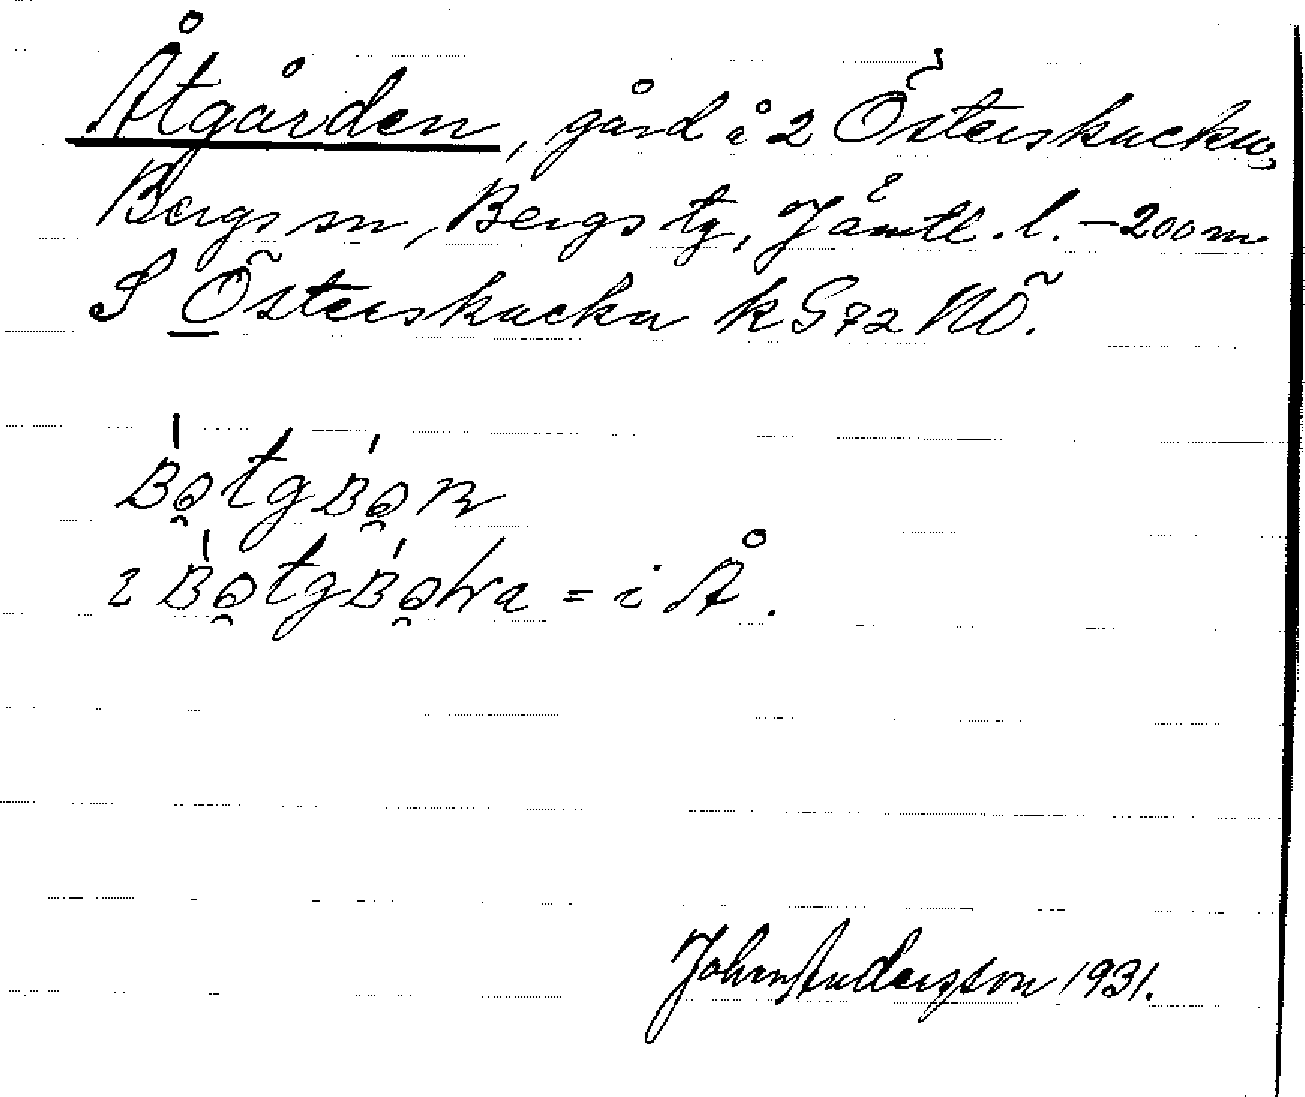 Åtgården, gård i 2 Österskucku,
Bergs sn, Bergs tg, Jämtl. l. - 200 m
S Österskucku k G 72 NÖ.
= i Å.
John Andersson 1931.